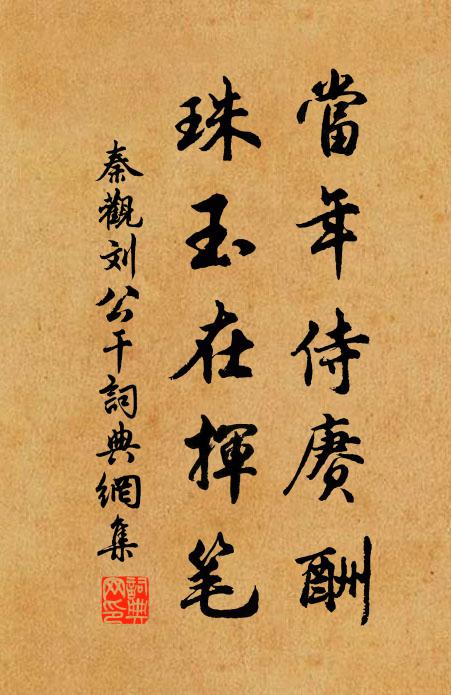 當年侍賡酬
珠玉在揮笔
秦觀刘公干詞典網集
詞典
网印